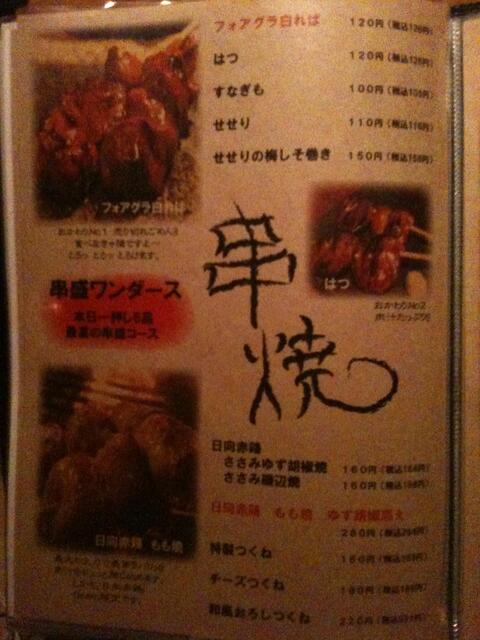 フォアグラ白ればー 120円(税込126円)
はつ 120円(税込126円)
すなぎも 100円(税込105円)
せせり 110円(税込116円)
せせりの梅しそ巻き 150円(税込158円)
フォアグラ白ればー
おかわりNo.1
串焼
はつ
おかわりNo.2
肉汁たっぷり!!
串盛ワンダース
本日一押し5品
最高の串盛コース
日向赤鶏 もも焼
日向赤鶏
ささみゆず胡椒焼 160円(税込168円)
ささみ磯辺焼 160円(税込168円)
日向赤鶏 もも焼 ゆず胡椒添え
280円(税込294円)
特製つくね
チーズつくね 180円(税込189円)
和風おろしつくね 220円(税込231円)